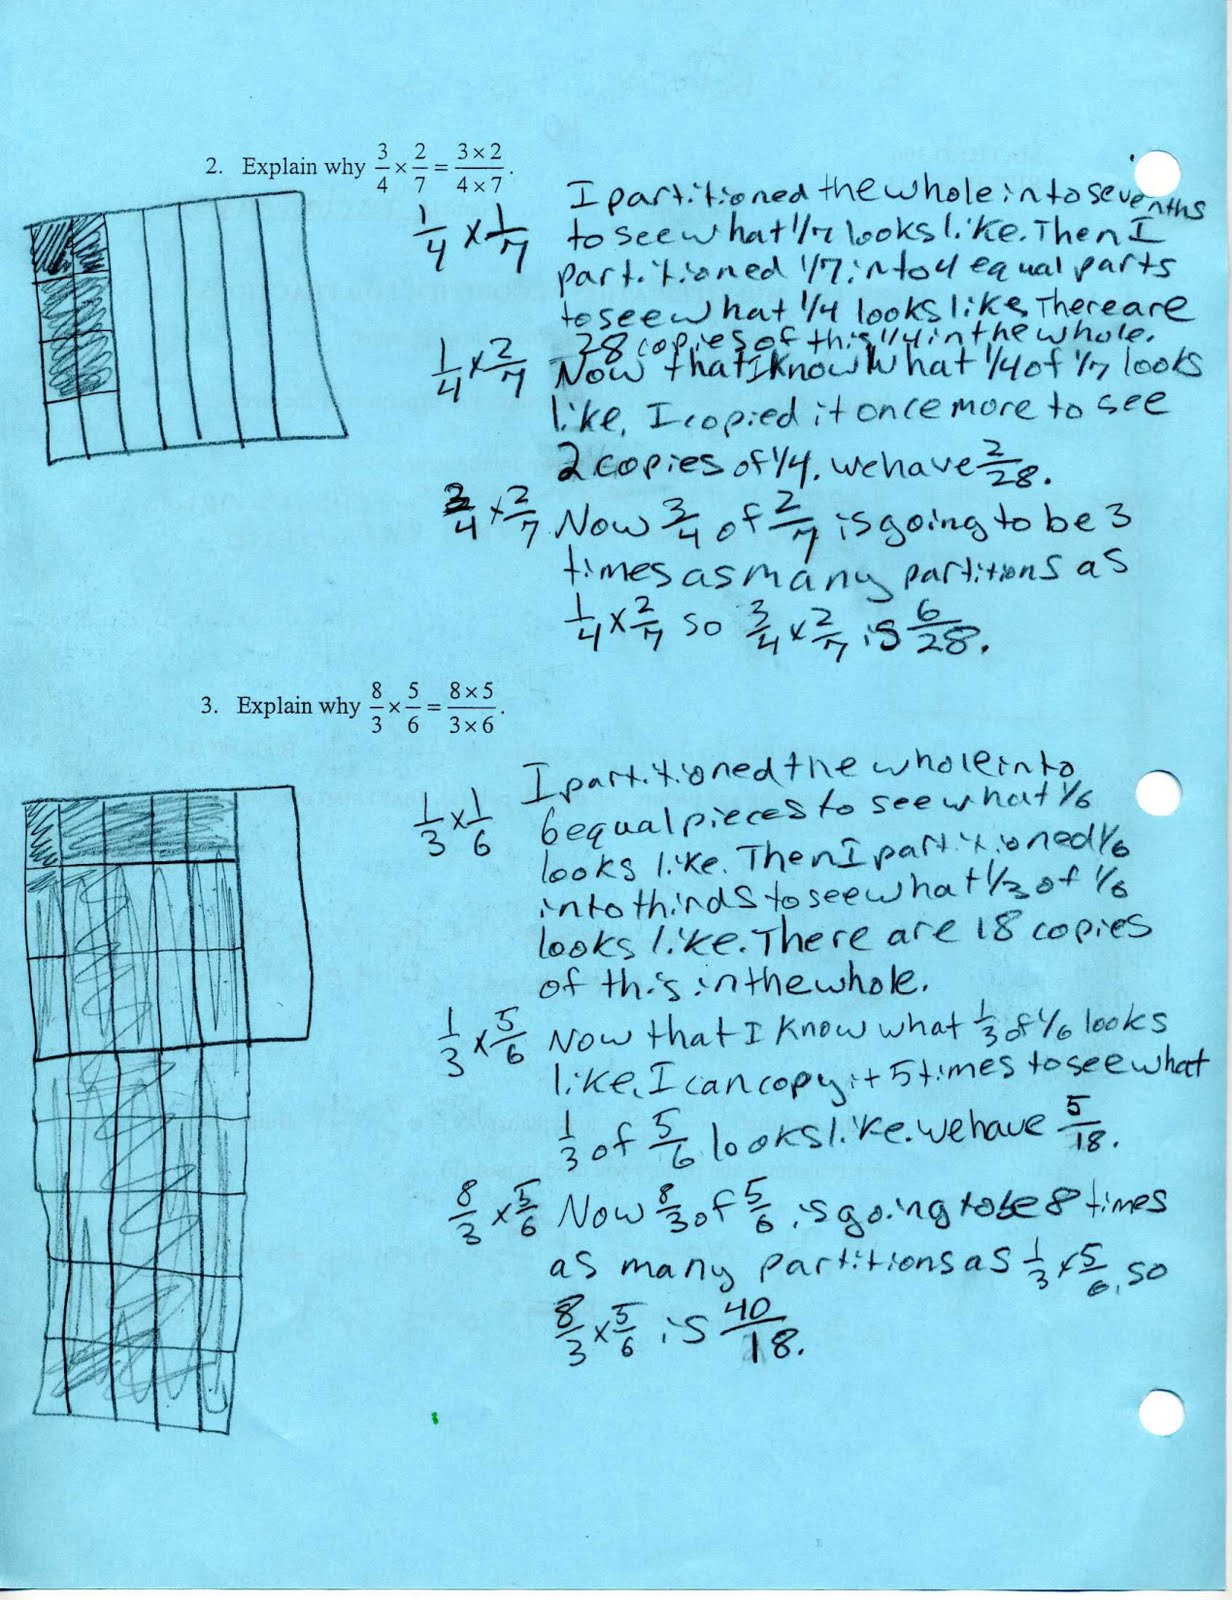 2. Explain why 3/4 × 2/7 = 3×2/4×7.
1/4 × 1/7
I partitioned the whole into sevenths
to see what 1/7 looks like. Then I
partitioned 1/7 into 4 equal parts
to see what 1/4 looks like. There are
28 copies of this 1/4 in the whole.
1/4 × 2/7
Now that I know what 1/4 of 1/7 looks
like, I copied it once more to see
2 copies of 1/4. we have 2/28.
3/4 × 2/7
Now 3/4 of 2/7 is going to be 3
times as many partitions as
1/4 × 2/7 so 3/4 × 2/7 is 6/28.
3. Explain why 8/3 × 5/6 = 8×5/3×6.
1/3 × 1/6
I partitioned the whole into
6 equal pieces to see what 1/6
looks like. Then I partitioned 1/6
into thirds to see what 1/3 of 1/6
looks like. There are 18 copies
of this in the whole.
1/3 × 5/6
Now that I know what 1/3 of 1/6 looks
like, I can copy it 5 times to see what
1/3 of 5/6 looks like. we have 5/18.
8/3 × 5/6
Now 8/3 of 5/6 is going to be 8 times
as many partitions as 1/3 × 5/6, so
8/3 × 5/6 is 40/18.